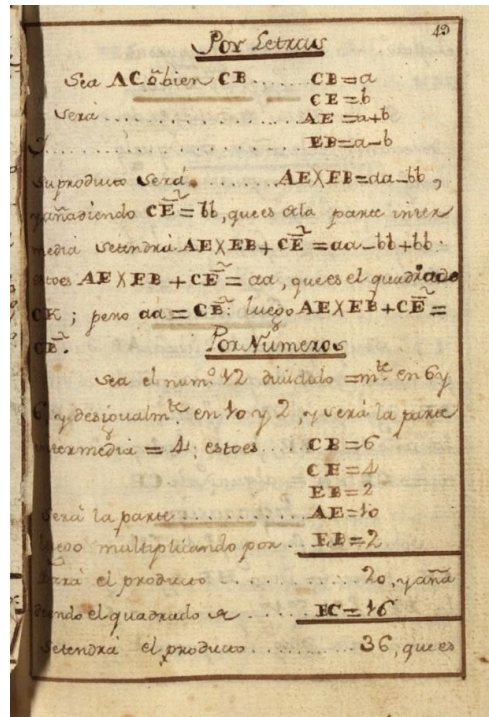 43
Por Letras
Sea AC ō bien CB ..... CB=a
CE=b
Será .................. AE=a+b
Y .................. EB=a-b
su producto Será ........ AE X EB=aa-bb,
y añadiendo CE²=bb, que es de la parte inter
media setendrá AE X EB+CE²=aa-bb+bb.
estoes AE X EB+CE²=aa, que es el quadrado
CK; pero aa=CB²: luego AE X EB+CE²=
CB².
Por Números
Sea el num.º 12 dividido =m.te en 6 y
6, y desigualm.te en 10 y 2, y será la parte
intermedia =4; estoes CB=6
CE=4
EB=2
Será la parte .......... AE=10
luego multiplicando por .. EB=2
será el producto ........ 20, y aña
diendo el quadrado de ..... EC=16
setendrá el producto ..... 36, que es